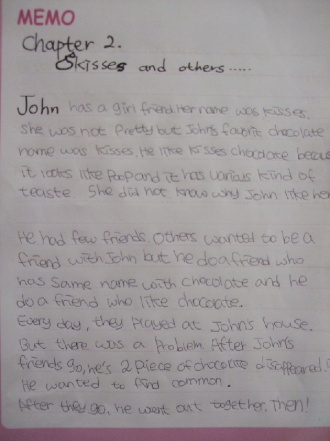 MEMO
Chapter 2.
Skisses and others.....
John has a girl friend Her name was kisses.
She was not Pretty but John's favorit chocolate
name was kisses, He like kisses chocolate becau
it looks like poop and it has various kind of
teaste She did not know why John like her
He had few friends. Others wanted to be a
friend with John but he do a friend who
has same name with chocolate and he
do a friend who like chocolate.
Every day, they Played at John's house.
But there was a Problem. After John's
friends go, he's 2 piece of chocolate disappeared.
He wanted to find common.
After they go, he went out together, Then!